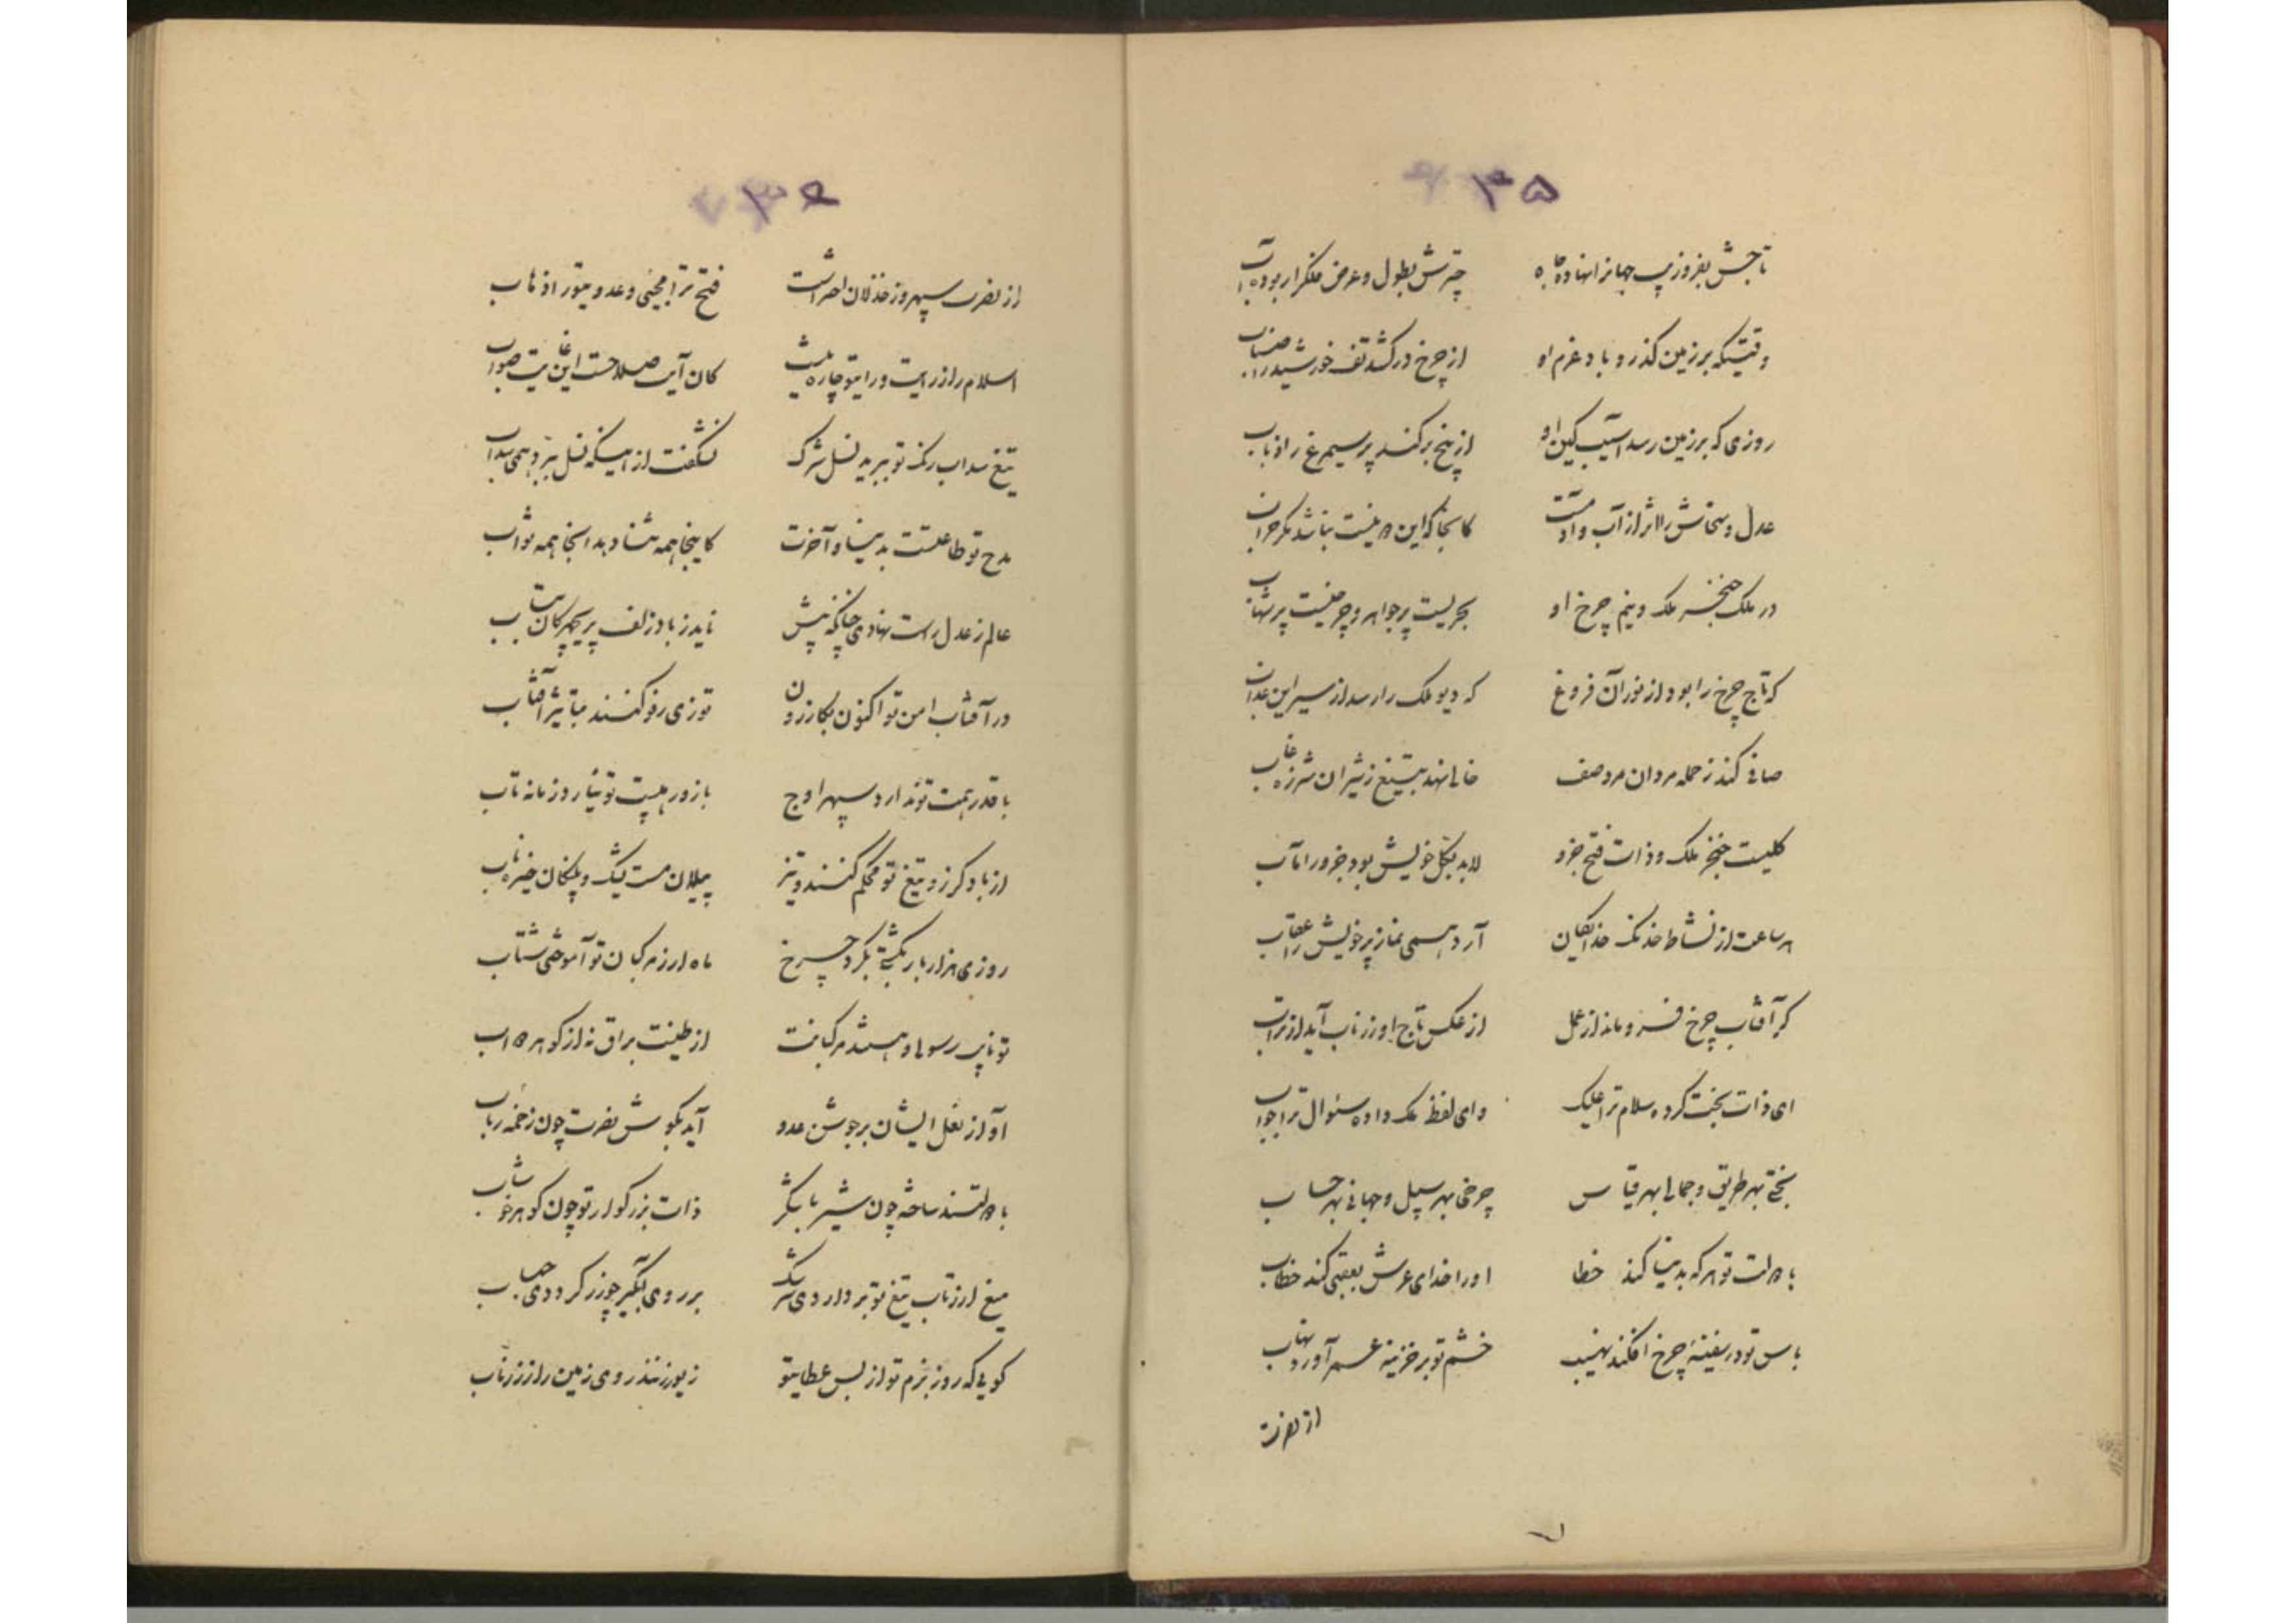 ۳۵
تا جش بفروزیب جهانرا نهاده جاه چترش بطول و عرض فلکرا ربوده آب
وقتیکه بر زمین گذرد باد عزم او از چرخ درکشد تف خورشید را
روزی که بر زمین رسد آسیب کین او از بیخ برکند پر سیمرغ را ذباب
عدل و سخاش را اثر از آب و آدمست کانجا که این دو نیست نباشد مگر خراب
در ملک خنجر ملک و نیم چرخ او بحریست پر جواهر و چرخیست پر شهاب
که تاج چرخ را بود از نور آن فروغ که دیو ملک را رسد از سیر این عذاب
صافی کند ز حمله مردان مرد صف خالی نهد بتیغ ز شیران شرزه غاب
کلیست خنجر ملک و ذات فتح جزو لابد بکل خویش بود جزو را مآب
هر ساعت از نشاط خدنگ خدایگان آرد همی نماز پر خویش را عقاب
گر آفتاب چرخ فرو ماند از عمل از عکس تاج او زر ناب آید از تراب
ای ذات بخت کرده سلام ترا علیک وای لفظ ملک داده سئوال ترا جواب
بختی بهر طریق و جمالی بهر قیاس چرخی بهر سبیل و جهانی بهر حساب
با دولت تو هر که بدنیا کند خطا او را خدای عرش بعقبی کند خطاب
باس تو در سفینهٔ چرخ افکند نهیب خشم تو بر خزینه عمر آورد نهاب
از نصرت
۳۶
از نصرت سپهر و ز خذلان اختراست فتح ترا مجیی و عدو ترا ذهاب
اسلام را ز رایت و رای تو چاره نیست کان آیت صلاحست این غایت صواب
تیغ سداب رنگ تو ببرید نسل شرک نشگفت از اینکه نسل ببرد همی سداب
مدح تو طاعتست بدنیا و آخرت کاینجا همه ثنا دهد آنجا همه ثواب
عالم ز عدل راست نهادی چنانکه نیش ناید ز باد زلف پریچهرگان بتاب
در آفتاب امن تو اکنون بکازرون توزی رفو کنند بتاثیر آفتاب
با قدر همت تو ندارد سپهر اوج با زور هیبت تو نیارد زمانه تاب
از باد گرز و تیغ تو محکم کنند و تیز پیلان مست یشک و پلنگان خیره ناب
روزی هزار بار بگشتی بگرد چرخ ماه ار ز مرکبان تو آموختی شتاب
تو نایب رسولی و هستند مرکبانت از طینت براق نه از گوهر دواب
آواز نعل ایشان بر جوشن عدو آید بگوش نصرت چون زخمهٔ رباب
با دولتند ساخته چون شیر با شکر ذات بزرگوار تو چون گوهر خوشاب
میغ ار ز تاب تیغ تو بردارد سرشک بر روی آبگیر چو زر گردد حباب
گویی که روز بزم تو از بس عطای تو زیور نهند روی زمین را ز زر ناب